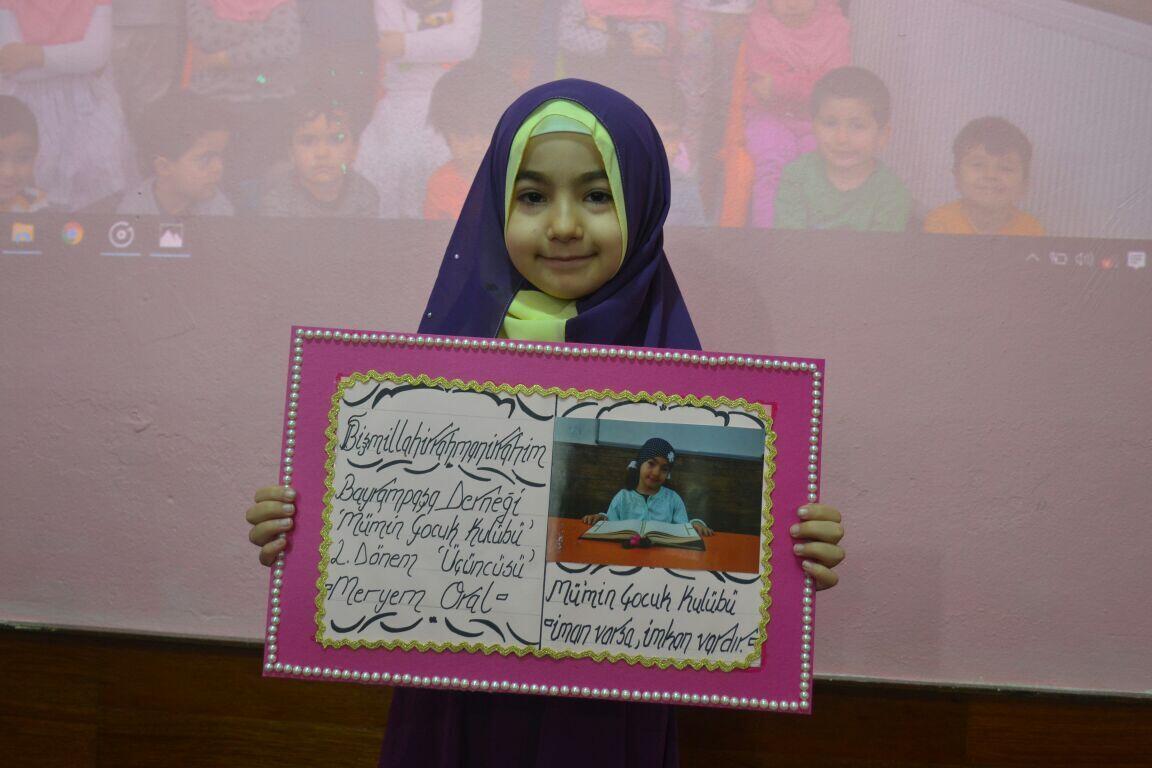 Bismillahirrahmanirrahim
Bayrampaşa Derneği
'Mü'min Çocuk Kulübü'
2. Dönem 'Üçüncüsü'
Meryem Oral
Mü'min Çocuk Kulübü
"iman varsa, imkan vardır."